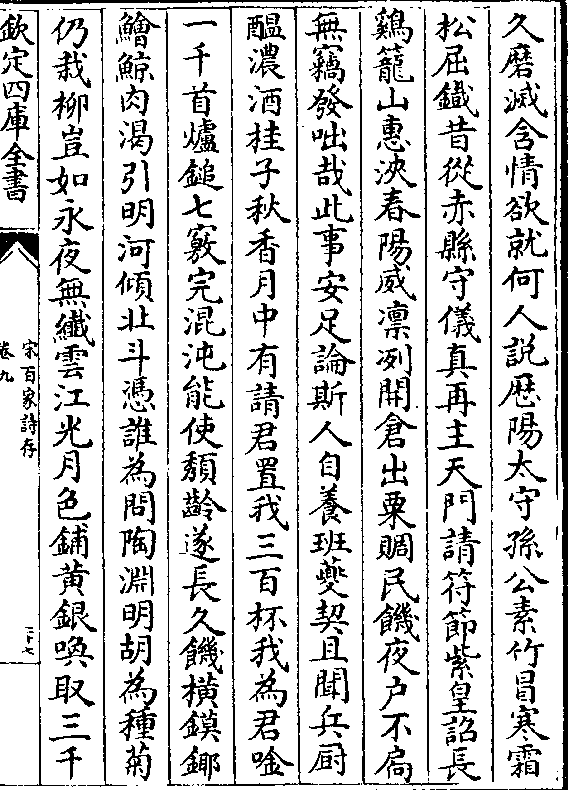 久磨滅含情欲就何人説歴陽太守孫公素竹冒寒霜
松屈鐵昔從赤縣守儀真再主天門請符節紫皇詔長
鷄籠山惠浹春陽威凛冽開倉出粟賙民饑夜户不扃
無竊發咄哉此事安足論斯人自養班夔契且聞兵厨
醖濃酒桂子秋香月中有請君置我三百杯我為君唫
一千首爐鎚七竅完混沌能使頽齡遂長久饑横鏌鎁
鱠鯨肉渴引明河傾北斗憑誰為問陶淵明胡為種菊
仍栽柳豈如永夜無纖雲江光月色鋪黄銀喚取三千
欽定四庫全書
宋百家詩存
卷九